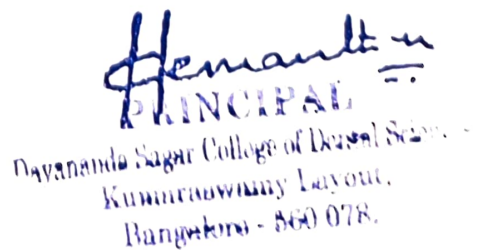 Hemanth
PRINCIPAL
Dayananda Sagar College of Dental
Kumaraswamy Layout,
Bangalore - 560 078.